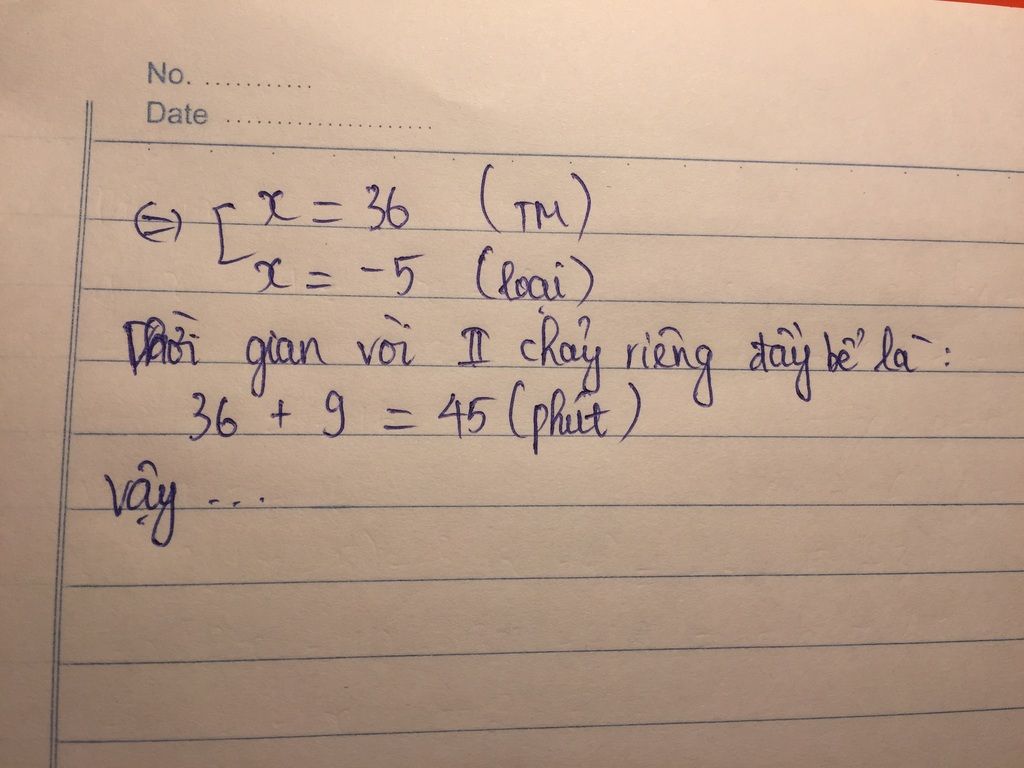 No. ...........
Date .....................
⇔ [ x = 36 (TM)
x = -5 (loại)
Thời gian vòi II chảy riêng đầy bể là:
36 + 9 = 45 (phút)
Vậy ...